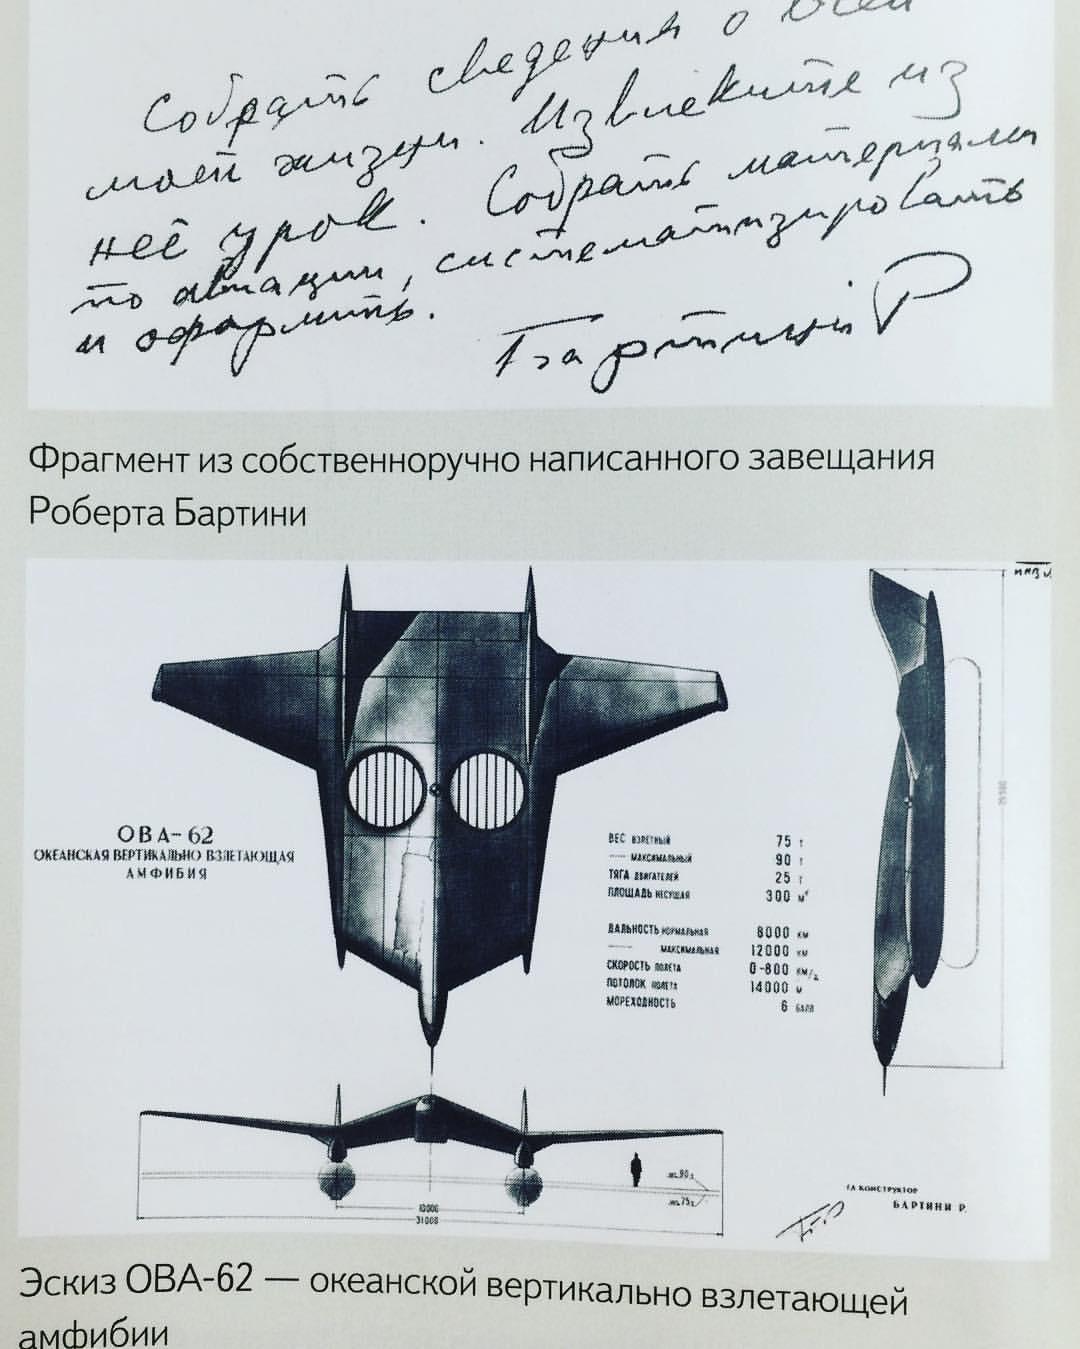 Собрать сведения о всей
моей жизни. Извлеките из
неё урок. Собрать материалы
по авиации, систематизировать
и оформить.
Бартини Р
Фрагмент из собственноручно написанного завещания
Роберта Бартини
ОВА-62
ОКЕАНСКАЯ ВЕРТИКАЛЬНО ВЗЛЕТАЮЩАЯ
АМФИБИЯ
ВЕС ВЗЛЕТНЫЙ 75 т
— МАКСИМАЛЬНЫЙ 90 т
ТЯГА ДВИГАТЕЛЕЙ 25 т
ПЛОЩАДЬ НЕСУЩАЯ 300 м²
ДАЛЬНОСТЬ НОРМАЛЬНАЯ 8000 км
— МАКСИМАЛЬНАЯ 12000 км
СКОРОСТЬ ПОЛЕТА 0-800 км/ч
ПОТОЛОК ПОЛЕТА 14000 м
МОРЕХОДНОСТЬ 6 балл
10000
31000
ГЛ КОНСТРУКТОР
БАРТИНИ Р.
Эскиз ОВА-62 — океанской вертикально взлетающей
амфибии